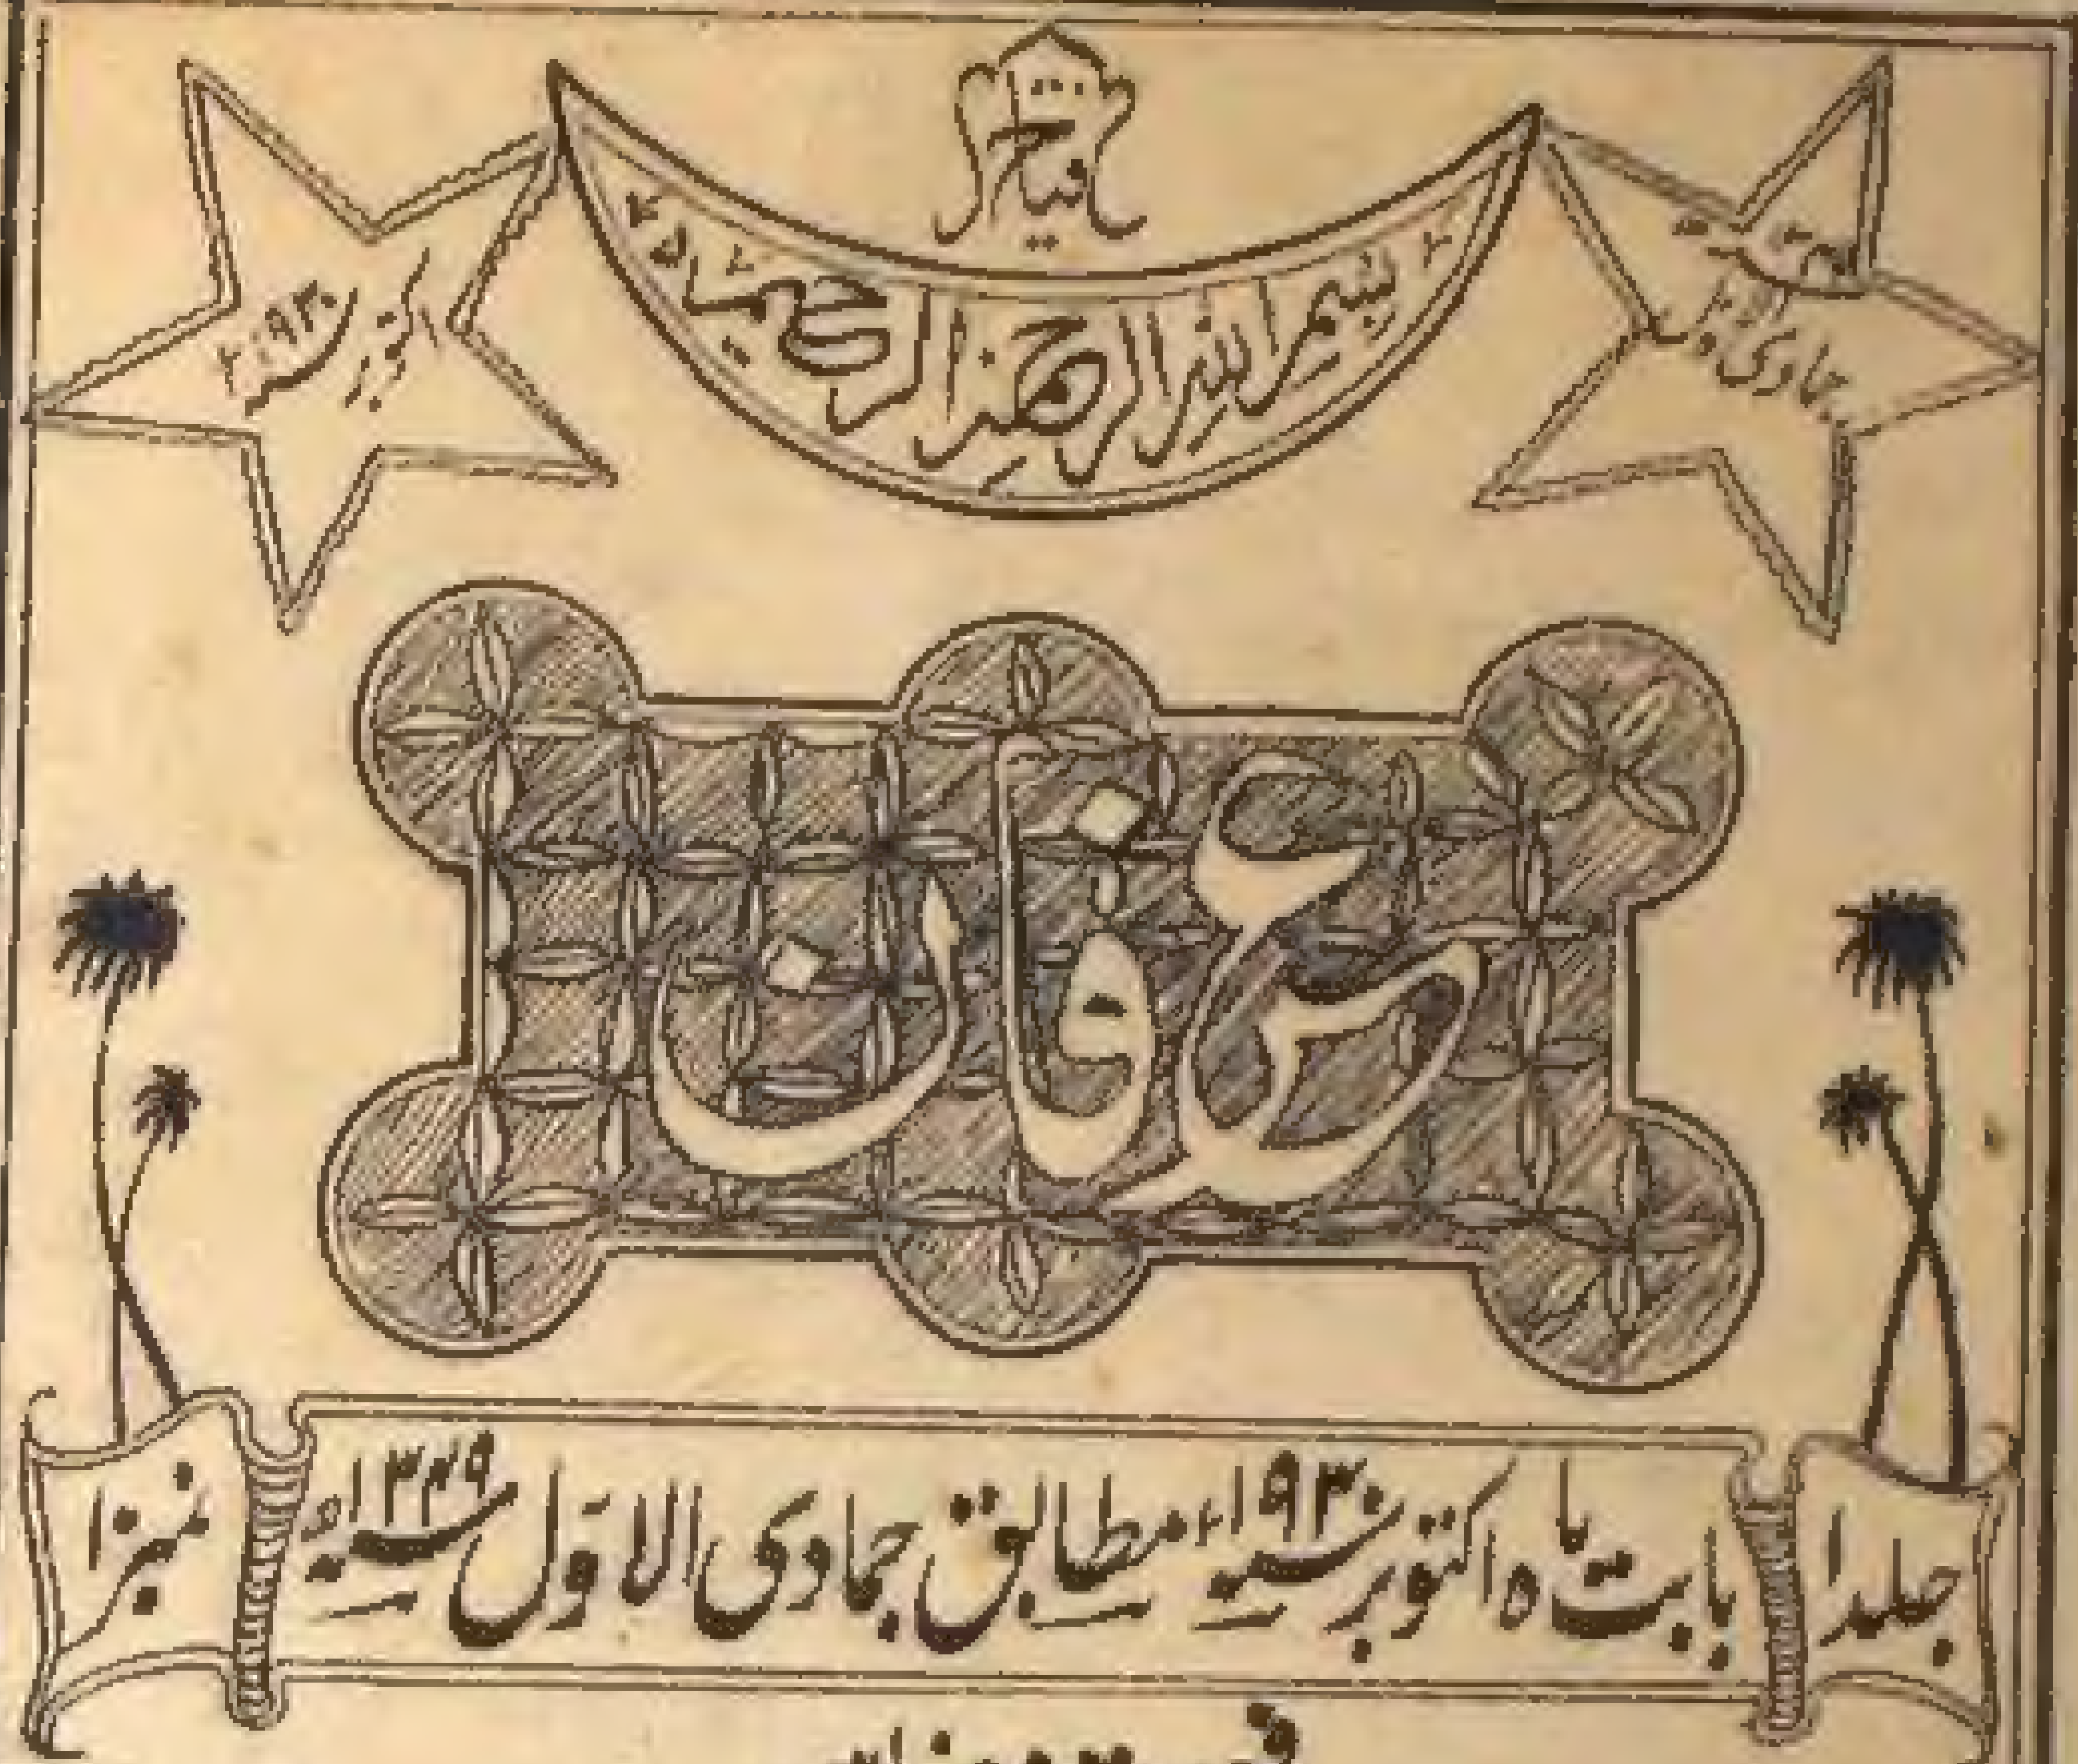 یا فتاح
بسم اللہ الرحمن الرحیم
جمادی الاول سنہ ۱۳۴۹ھ
اکتوبر سنہ ۱۹۳۰ء
عرفان
جلد ۱ بابت ماہ اکتوبر سنہ ۱۹۳۰ء مطابق جمادی الاوّل سنہ ۱۳۴۹ھ نمبر ۱